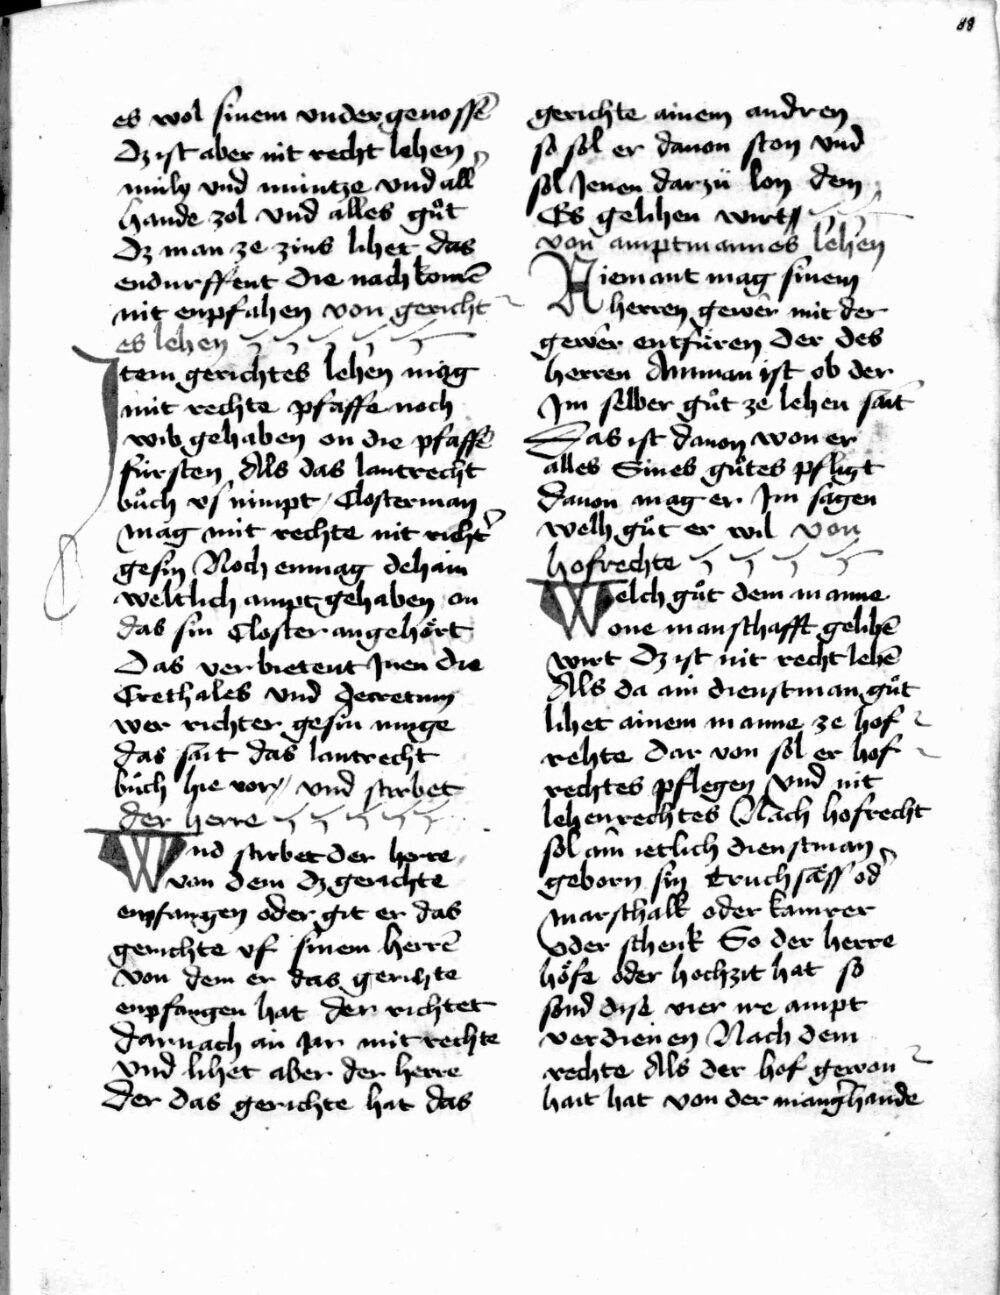 88
es wol sinem undergenossē
Dz ist aber nit recht lehen
müly vnd müntze vnd all
hande zol vnd alles gůt
Dz man ze zins lihet das
endurffent die nach komē
nit enpfahen von gericht
es lehen
Item gerichtes lehen mag
mit rechte pfaffe noch
wib gehaben on die pfaffē
fürsten Als das lantrecht
bůch vs nimpt / Closterman
mag mit rechte nit richt̄
gesin Noch enmag dehain
weltlich ampt gehaben on
das sin Closter angehőrt
Das verbietent Inen die
Crethales vnd Decretum
wer richter gesin muge
das sait das lantrecht
bůch hie vor // vnd stirbet
der herre
Vnd stirbet der herre
von dem dz gerichte
enpfangen oder git er das
gerichte vf sinem herrē
von dem er das gerichte
enpfangen hat der richtet
darnach ain Jar mit rechte
vnd lihet aber der herre
der das gerichte hat das
gerichte ainem andren
so sol er dauon ston vnd
sol Jenen darzů lon dem
Es gelihen wirt //
von amptmannes lehen
Niemant mag sinem
herren gewer mit der
gewer entfüren der des
herren Amman ist ob der
Im selber gůt ze lehen sait
Das ist dauon won er
alles Sines gůtes pfligt
dauon mag er Im sagen
welh gůt er wil von
hofrechte
Welch gůt dem manne
one manschafft gelihē
wirt dz ist nit recht lehē
Als da ain dienstman gůt
lihet ainem manne ze hof
rehte dar von sol er hof
rechtes pflegen vnd nit
lehenrechtes Nach hofrecht
sol ain ietlich dienstman
geborn sin truchsäss od̄
marschalk oder kamrer
oder schenk So der herre
hőfe oder hochzit hat so
sond dise vier ire ampt
verdienen Nach dem
rechte Als der hof gewon
hait hat von der manḡhande